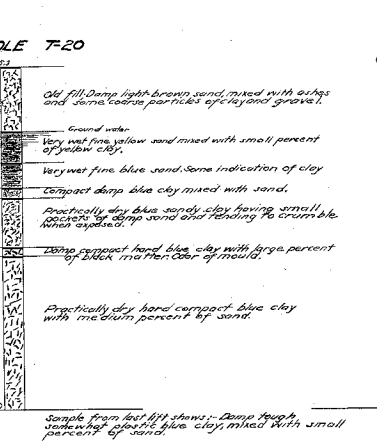 OLE T-20
Old fill-Damp light-brown sand, mixed with ashes
and some coarse particles of clay and gravel.
Ground water
Very wet fine yellow sand mixed with small percent
of yellow clay.
Very wet fine blue sand. Some indication of clay
Compact damp blue clay mixed with sand.
Practically dry blue sandy clay having small
pockets of damp sand and tending to crumble
when exposed.
Damp compact hard blue clay with large percent
of black matter. Odor of mould.
Practically dry hard compact blue clay
with medium percent of sand.
Sample from last lift shows:- Damp tough,
somewhat plastic blue clay, mixed with small
percent of sand.